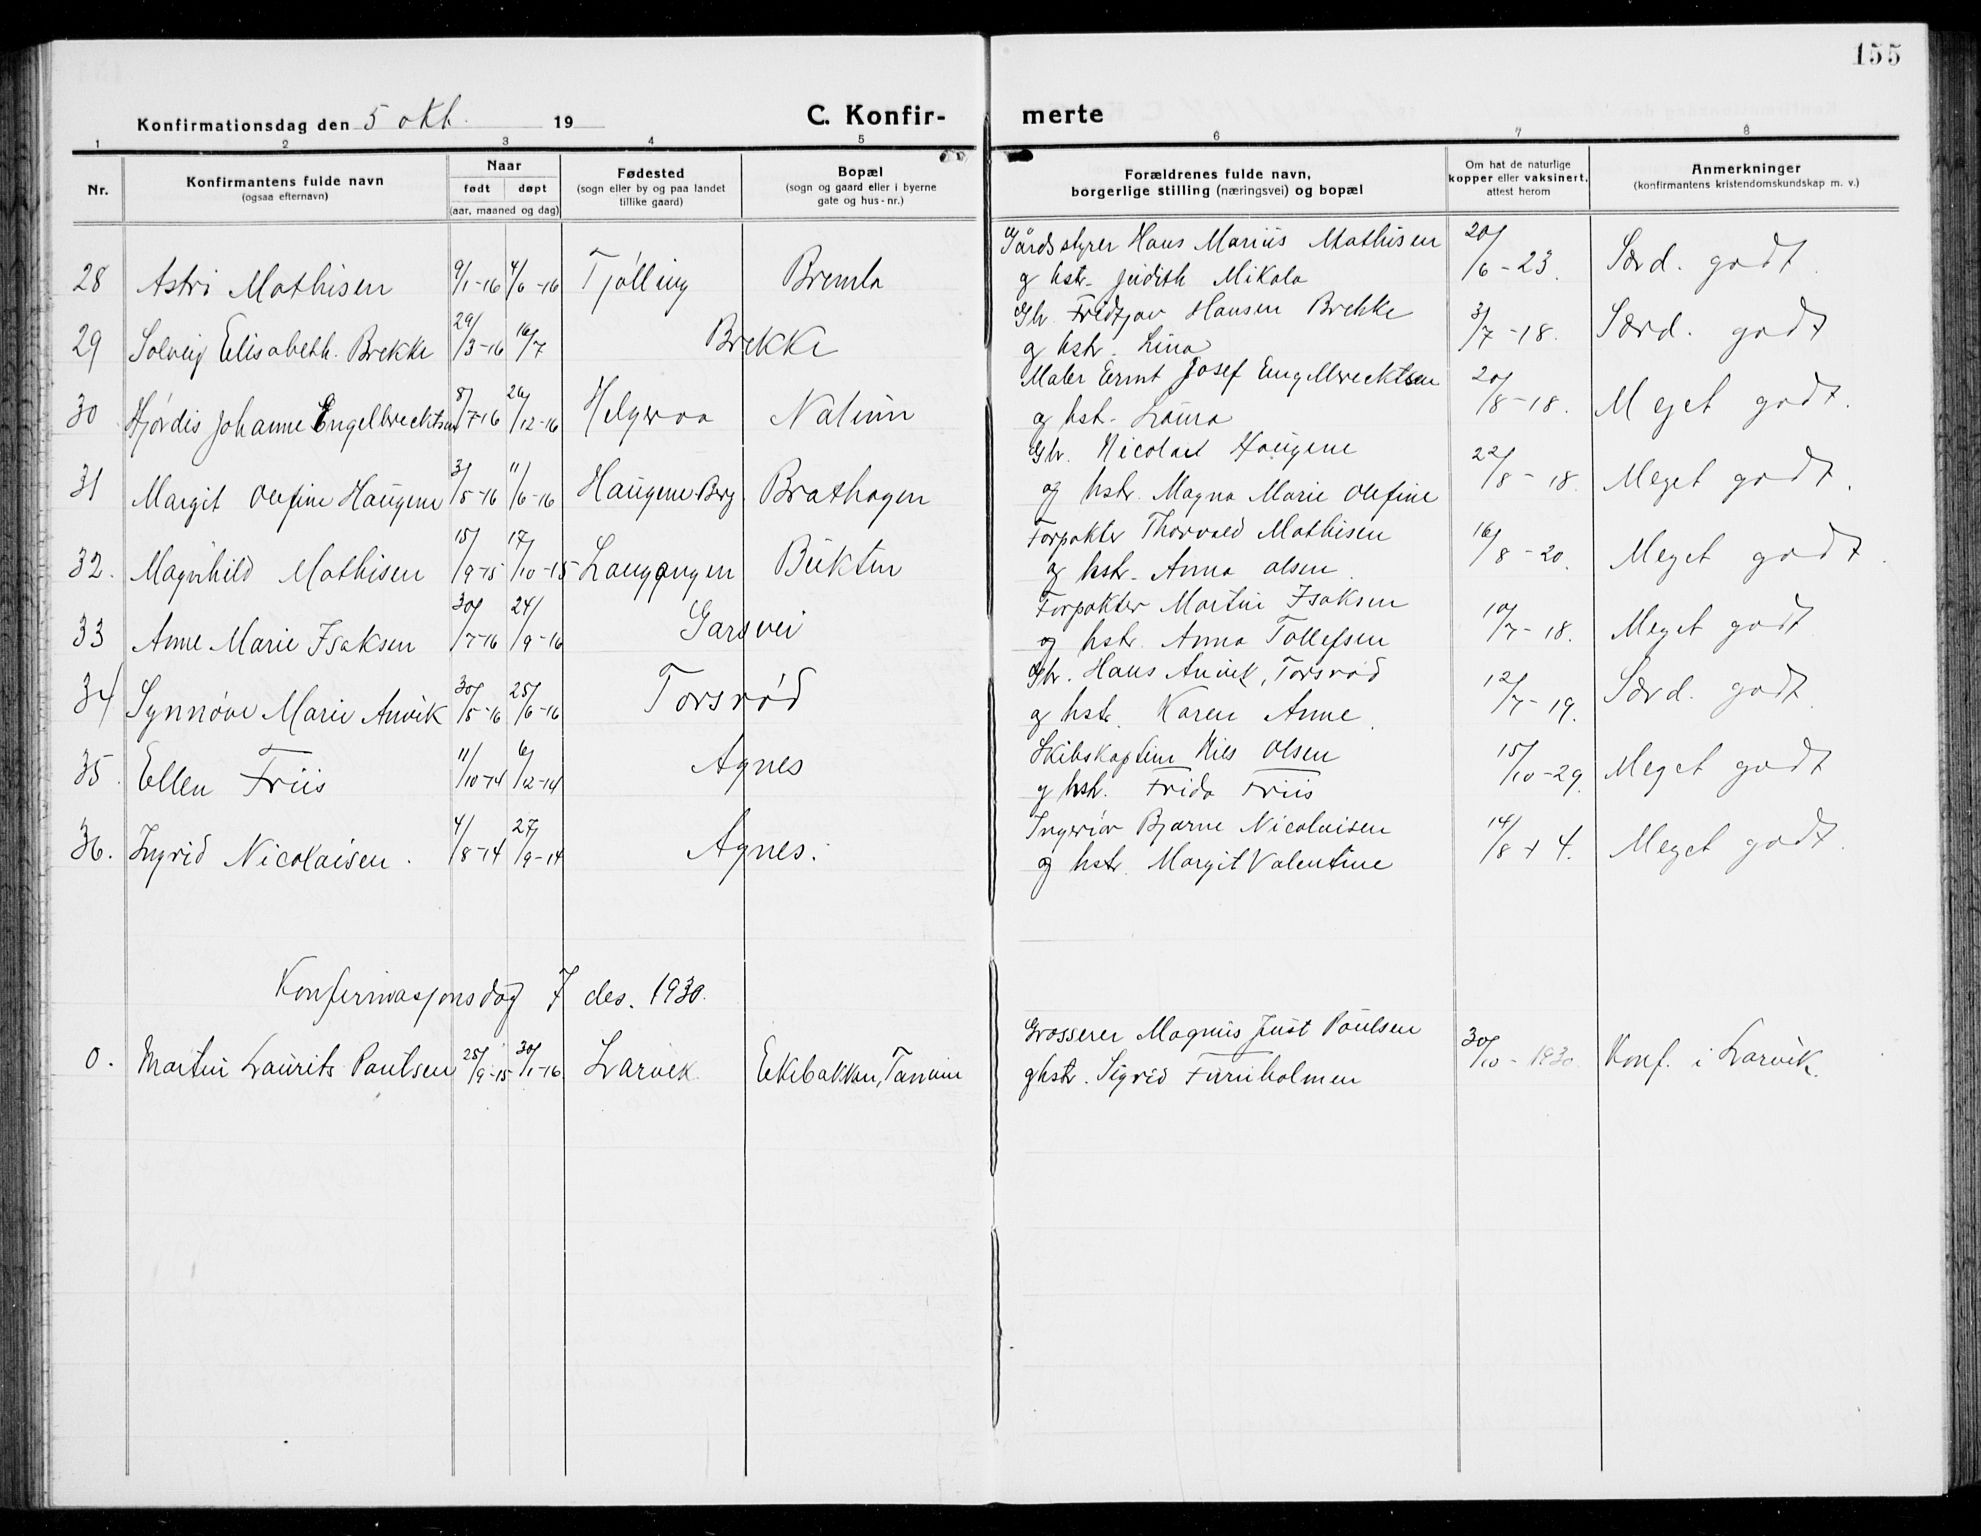 155
Konfirmationsdag den 5 okt. 19
C. Konfirmerte
1 2 3 4 5 6 7 8
Nr.
Konfirmantens fulde navn
(ogsaa efternavn)
Naar
født døpt
(aar, maaned og dag)
Fødested
(sogn eller by og paa landet
tillike gaard)
Bopæl
(sogn og gaard eller i byerne
gate og hus-nr.)
Forældrenes fulde navn,
borgerlige stilling (næringsvei) og bopæl
Om hat de naturlige
kopper eller vaksinert,
attest herom
Anmerkninger
(konfirmantens kristendomskundskap m. v.)
28 Astri Mathisen 9/1-16 4/6-16 Tjølling Bremla Gårdsstyrer Hans Marius Mathisen 20/6-23. Særd. godt.
og hstr. Judith Mikala
29 Solveig Elisabeth Brekke 29/3-16 16/7 Brekke Gbr. Fredtjov Hansen Brekke 3/7-18. Særd. godt
og hstr. Lina
30 Hjørdis Johanne Engelbrecktsen 8/7-16 26/12-16 Helgeroa Nalum Maler Ernst Josef Engelbrecktsen 20/8-18. Meget godt.
og hstr. Laura
31 Margit Olefine Haugene 3/5-16 11/6-16 Haugene Berg Brathagen Gbr. Nicolai Haugene 22/8-18. Meget godt.
og hstr. Magna Marie Olefine
32. Magnhild Mathisen 15/9-15 17/10-15 Langangen Bukten Forpakter Thorvald Mathisen 16/8-20. Meget godt.
og hstr. Anna Olsen.
33 Anne Marie Isaksen 30/7-16 24/9-16 Garsvei Forpakter Martin Isaksen 10/7-18. Meget godt
og hstr. Anna Tollefsen
34 Synnøve Marie Anvik 30/5-16 25/6-16 Torsrød Gbr. Hans Anvik, Torsrød 12/7-19. Særd. godt.
og hstr. Karen Anne.
35. Ellen Friis 11/10-14 6/12-14 Agnes Skibskaptein Nils Olsen 15/10-29. Meget godt
og hstr. Frida Friis
36. Ingrid Nicolaisen. 4/8-14 27/9-14 Agnes. Ingeniør Bjarne Nicolaisen 14/8 + 4. Meget godt.
og hstr. Margit Valentine
Konfirmasjonsdag 7 des. 1930.
0. Martin Laurits Paulsen 25/9-15 30/1-16 Larvik Ekebakken, Tanum Grosserer Magnus Just Paulsen 30/10-1930. Konf. i Larvik.
og hstr. Sigrid Furuholmen